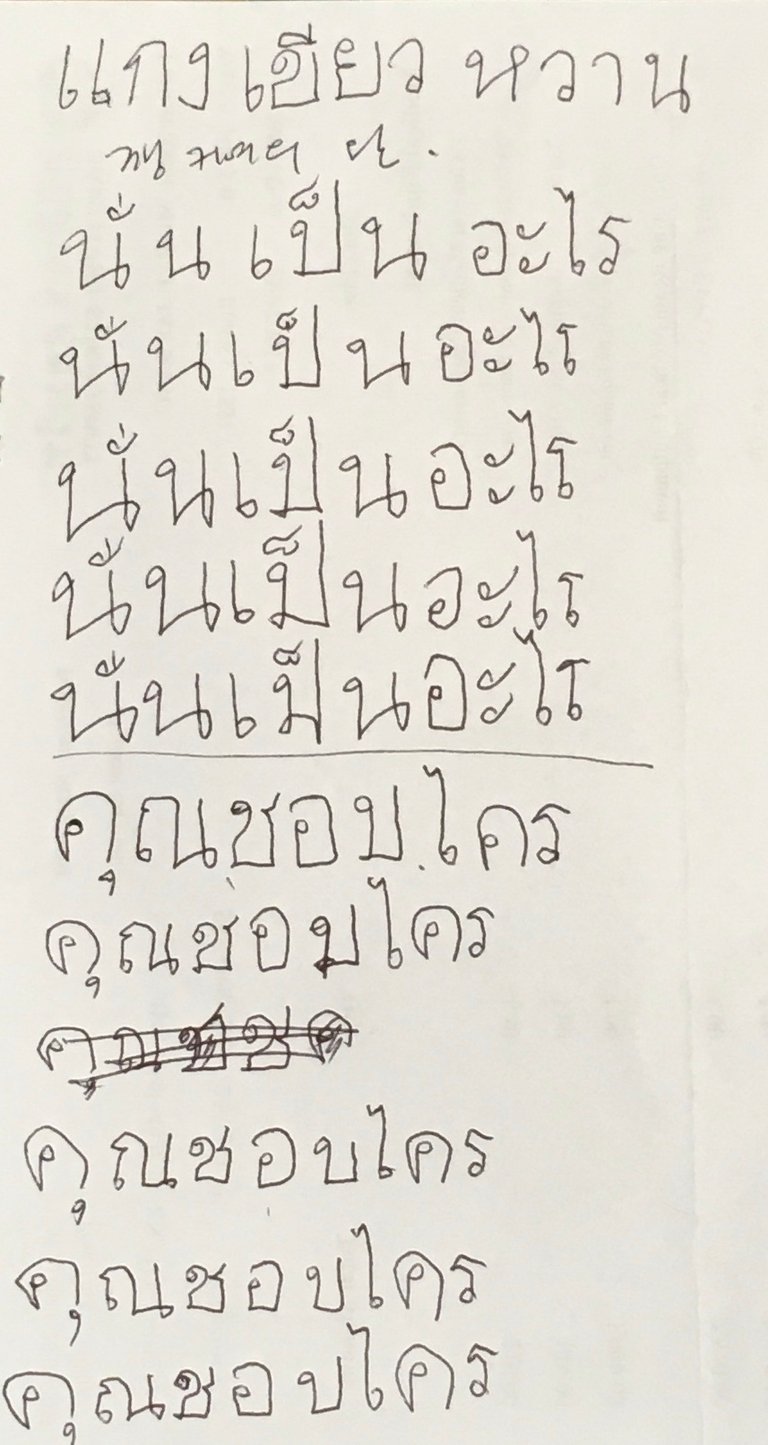 แกงเขียวหวาน
นั่นเป็นอะไร
นั่นเป็นอะไร
นั่นเป็นอะไร
นั่นเป็นอะไร
นั่นเป็นอะไร
คุณชอบไคร
คุณชอบไคร
คุณชอบไคร
คุณชอบไคร
คุณชอบไคร